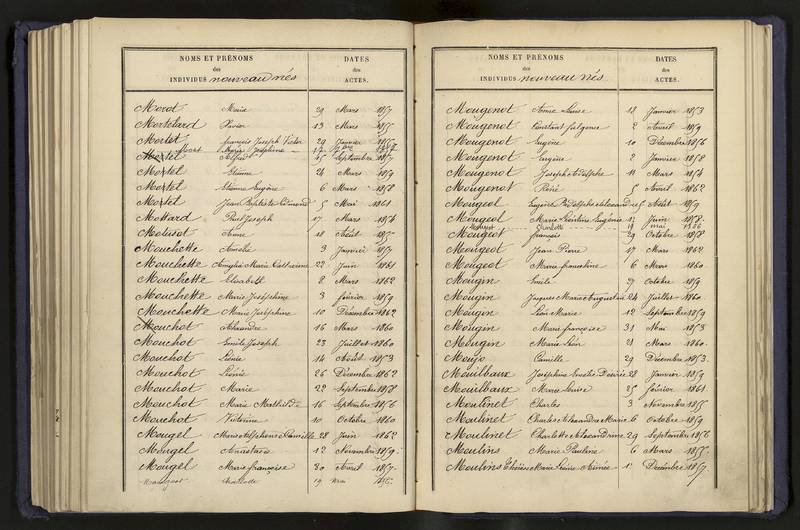 NOMS ET PRÉNOMS
des
INDIVIDUS nouveau nés
DATES
des
ACTES.
Morot Marie 29 Mars 1857
Mortelard Xavier 13 Mars 1855
Mortet François Joseph Victor 29 Janvier
Marie Joséphine
Mortet Alfred 15 Septembre
Mortet Etienne 24 Mars 1859
Mortet Etienne Eugène 6 Mars 1858
Mortet Jean Baptiste Edmond 5 Mai 1861
Mottard Paul Joseph 17 Mars 1854
Anne 18 Août 1855
Mouchette Amélie 3 Janvier 1857
Mouchette Marie Catherine 22 Juin 1861
Mouchette Elisabeth 8 Mars 1862
Mouchette Marie Joséphine 3 février 1859
Mouchette Marie Joséphine 10 Décembre 1862
Mouchot Alexandre 16 Mars 1860
Mouchot Emile Joseph 23 Juillet 1860
Mouchot Léonie 14 Août 1853
Mouchot Léonie 26 Décembre 1862
Mouchot Marie 22 Septembre 1858
Mouchot Marie Mathilde 16 Septembre 1856
Mouchot Victorine 10 Octobre 1860
Mougel Marie Alphonse Camille 28 Juin 1862
Mougel Anastasie 12 Novembre 1859
Mougel Marie françoise 30 Avril 1857
Mougeot Charlotte 19 Mai
NOMS ET PRÉNOMS
des
INDIVIDUS nouveau nés
DATES
des
ACTES.
Mougenot Anne Louise 18 Janvier 1853
Mougenot Constant fulgence 2 Avril 1859
Mougenot Eugène 10 Décembre 1856
Mougenot Eugène 2 Janvier 1858
Mougenot Joseph Adolphe 11 Mars 1854
Mougenot René 5 Avril 1862
Mougeol Eugène Adolphe Alexandre 5 Août 1859
Mougeol Marie Léontine Eugénie Juin 1858
Mougeot Charlotte 19 mai 1856
Mougeot françois 29 Octobre 1858
Mougeot Jean Pierre 17 Mars 1862
Mougeot Marie francoline 6 Mars 1860
Mougin Emile 27 Octobre 1859
Mougin Jacques Marie Augustin 24 Juillet 1860
Mougin Léon Marie 12 Septembre 1859
Mougin Marie françoise 31 Mai 1853
Mougin Marie Léon 21 Mars 1860
Camille 29 Décembre 1853
Mouilbaux Joséphine Emélie Désirée 22 Janvier 1859
Mouilbaux Marie Louise 25 février 1861
Moulinet Charles 3 Novembre 1855
Moulinet Charles Alexandre Marie 6 Octobre 1859
Moulinet Charlotte Alexandrine 29 Septembre 1856
Moulins Marie Pauline 6 Mars 1855
Moulins Thérèse Marie Louise Aimée 1er Décembre 1857